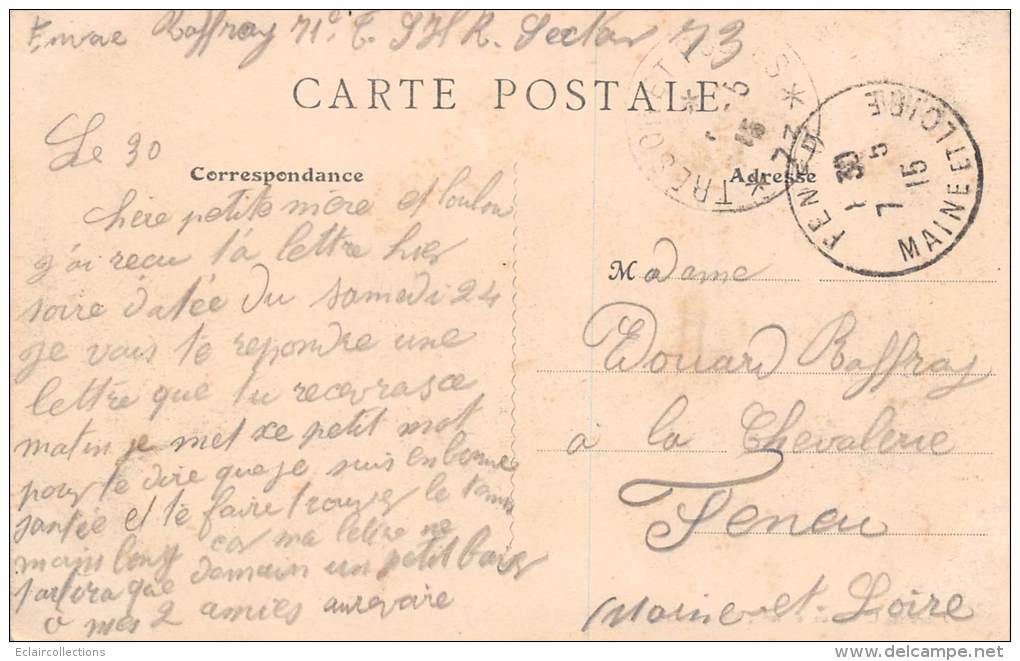 Raffray 71e T. 9 H R. Secteur 73
CARTE POSTALE
TRESOR ET POSTES * 73 *
FENEU MAINE ET LOIRE
7 30
5
15
Le 30
Correspondance
Adresse
chère petite mère et loulou
j'ai recu ta lettre hier
soire datée du samedi 24
je vais te repondre une
lettre que tu recevras ce
matin je met ce petit mot
pour te dire que je suis en bonne
santée et te faire trouver le temp
moins long car ma lettre ne
partira que demain un petit baiser
a mes 2 amies aurevoire
Madame
Edouard Raffray
a la Chevalerie
Feneu
Maine-et-Loire
Eclaircollections
delcampe.net